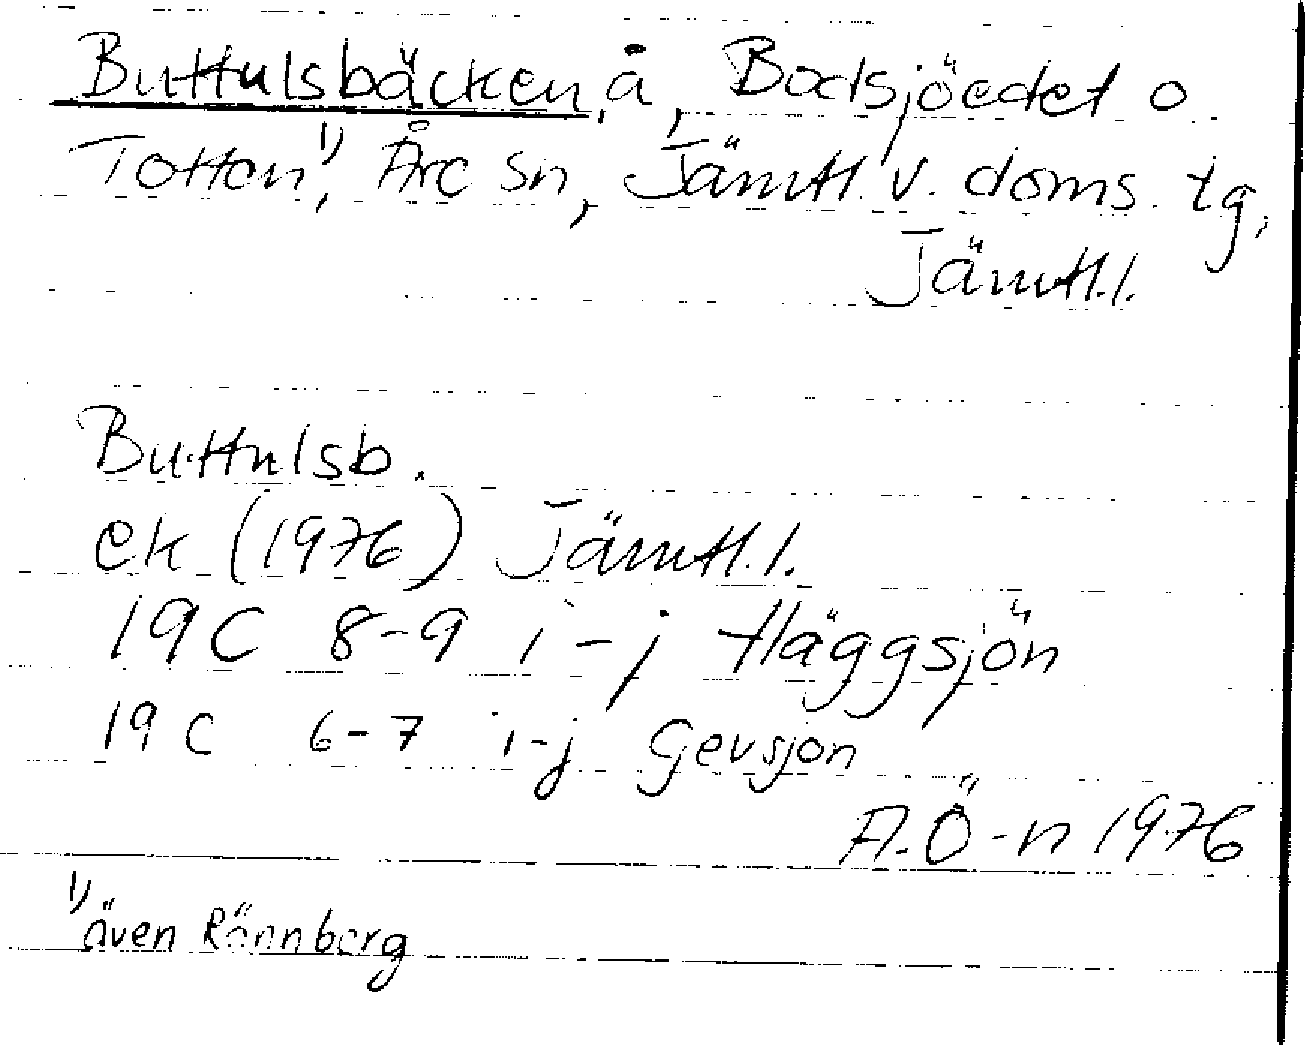 Buttulsbäcken, å, Bodsjöedet o
Totten¹⁾, Åre sn, Jämtl. v. doms. tg,
Jämtl. l.
Buttulsb.
ek (1976) Jämtl. l.
19C 8-9 i-j Häggsjön
19C 6-7 i-j Gevsjön
A.Ö-n 1976
¹⁾ även Rännberg